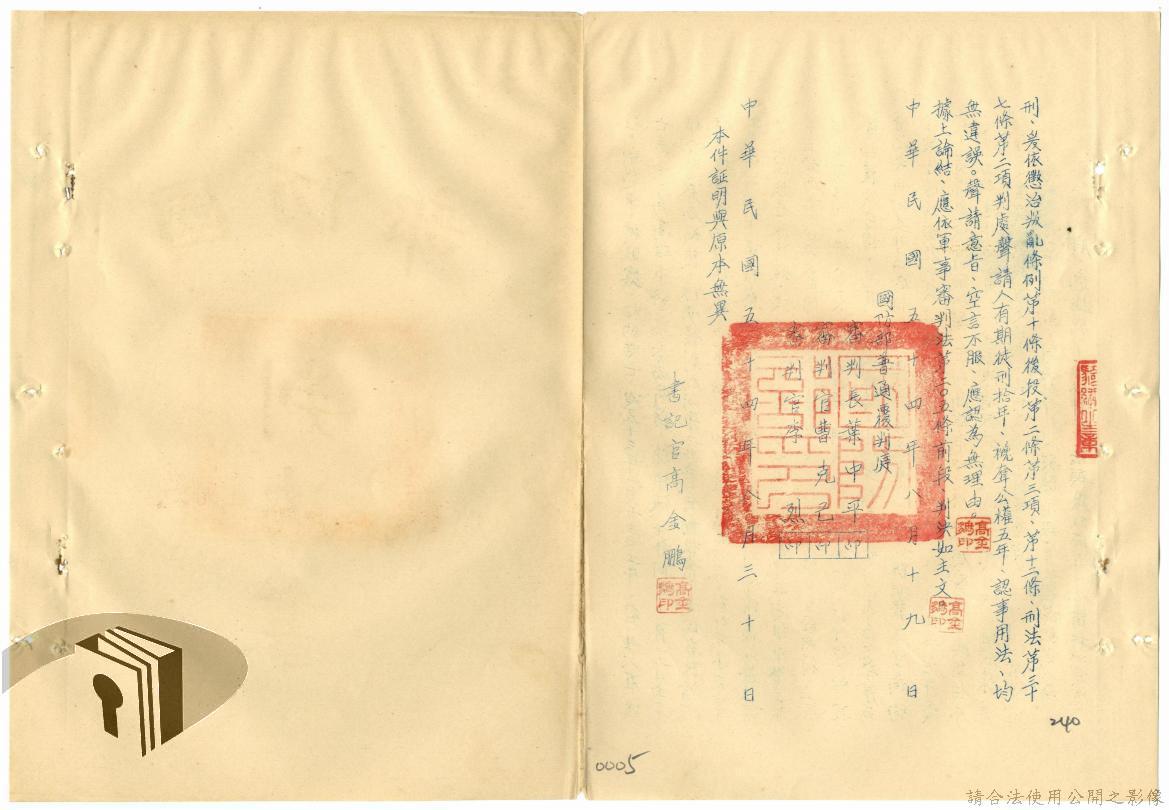 刑、爰依懲治叛亂條例第十條後段第二條第三項、第十二條、刑法第三十
七條第二項判處聲請人有期徒刑拾年、褫奪公權五年、認事用法、均
無違誤。聲請意旨、空言不服、應認為無理由。
據上論結、應依軍事審判法第二〇五條前段 判決如主文
中華民國五十四年八月十九日
國防部普通覆判庭
審判長葉中平 印
審判官曹克己 印
審判官 烈 印
中華民國五十四年八月三十日
本件証明與原本無異
書記官高金鵬
高金鵬印
高金鵬印
高金鵬印
240
0005
請合法使用公開之影像